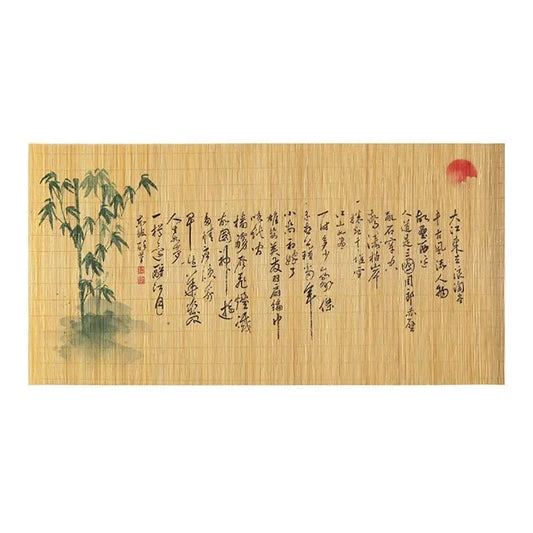 大江東去浪淘尽
千古風流人物
故壘西边
人道是三國周郎赤壁
乱石穿空
驚濤拍岸
捲起千堆雪
江山如画
一时多少豪傑
遥想公瑾当年
小喬初嫁了
雄姿英发羽扇綸巾
談笑间
檣艣灰飛煙滅
故國神游
多情应笑我
早生華发
人生如梦
一樽还酹江月